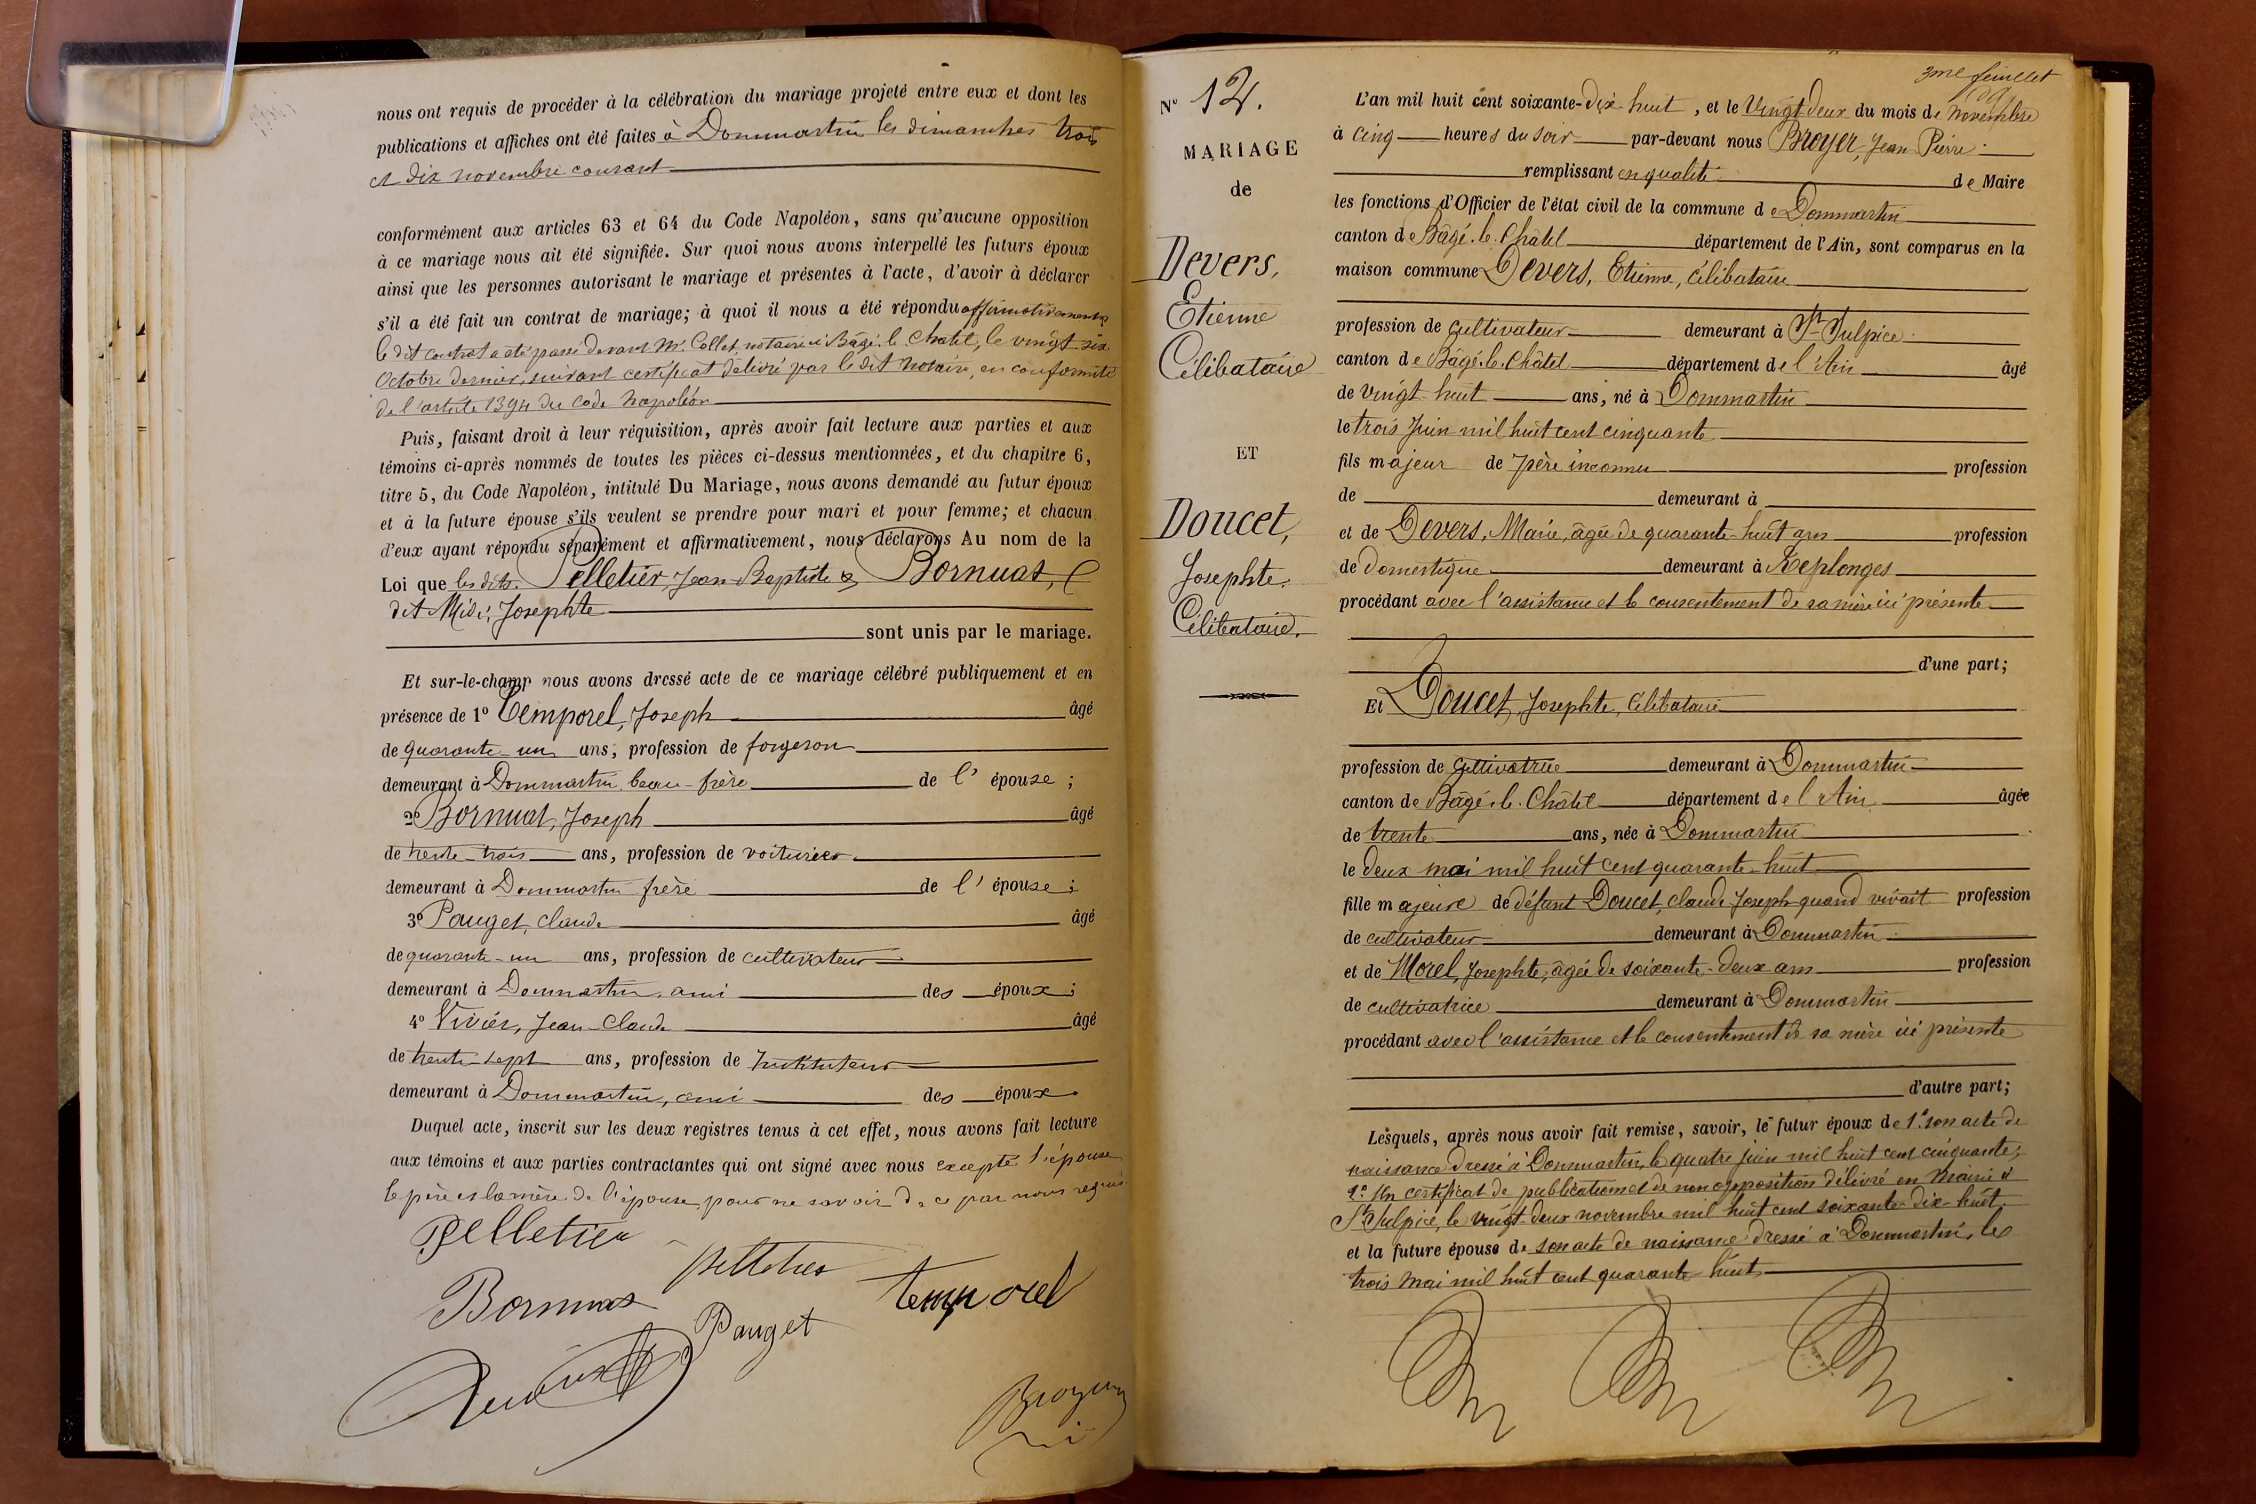 nous ont requis de procéder à la célébration du mariage projeté entre eux et dont les
publications et affiches ont été faites à Dommartin les dimanches trois
et dix novembre courant
conformément aux articles 63 et 64 du Code Napoléon, sans qu'aucune opposition
à ce mariage nous ait été signifiée. Sur quoi nous avons interpellé les futurs époux
ainsi que les personnes autorisant le mariage et présentes à l'acte, d'avoir à déclarer
s'il a été fait un contrat de mariage; à quoi il nous a été répondu affirmativement
le dit contrat a été passé devant Mr. Collet, notaire à Bâgé-le-Châtel, le vingt six
Octobre dernier, suivant certificat délivré par le dit notaire, en conformité
de l'article 1394 du Code Napoléon
Puis, faisant droit à leur réquisition, après avoir fait lecture aux parties et aux
témoins ci-après nommés de toutes les pièces ci-dessus mentionnées, et du chapitre 6,
titre 5, du Code Napoléon, intitulé Du Mariage, nous avons demandé au futur époux
et à la future épouse s'ils veulent se prendre pour mari et pour femme; et chacun
d'eux ayant répondu séparément et affirmativement, nous déclarons Au nom de la
Loi que les dits Pelletier, Jean-Baptiste & Bornuat,
dit Midi, Josephte
sont unis par le mariage.
Et sur-le-champ nous avons dressé acte de ce mariage célébré publiquement et en
présence de 1º Temporel, Joseph âgé
de quarante-un ans, profession de forgeron
demeurant à Dommartin, beau-frère de l'épouse;
2º Bornuat, Joseph âgé
de trente-trois ans, profession de voiturier
demeurant à Dommartin frère de l'épouse;
3º Pauget, Claude âgé
de quarante-un ans, profession de cultivateur
demeurant à Dommartin, ami des époux;
4º Vivier, Jean-Claude âgé
de trente-sept ans, profession de Instituteur
demeurant à Dommartin, ami des époux.
Duquel acte, inscrit sur les deux registres tenus à cet effet, nous avons fait lecture
aux témoins et aux parties contractantes qui ont signé avec nous excepté l'épouse
le père et la mère de l'épouse pour ne savoir de ce par nous requis
Pelletier
pelletier
temporel
Bornuat
Pauget
Broyer
3me feuillet
Nº 12.
MARIAGE
de
Devers,
Etienne
Célibataire
ET
Doucet,
Josephte,
Célibataire.
L'an mil huit cent soixante-dix-huit, et le Vingt deux du mois de novembre
à cinq heures du soir par-devant nous Broyer, Jean Pierre
remplissant en qualité de Maire
les fonctions d'Officier de l'état civil de la commune de Dommartin
canton de Bâgé-le-Châtel département de l'Ain, sont comparus en la
maison commune Devers, Etienne, célibataire
profession de cultivateur demeurant à St Sulpice
canton de Bâgé-le-Châtel département de l'Ain âgé
de vingt-huit ans, né à Dommartin
le trois Juin mil huit cent cinquante
fils majeur de père inconnu profession
de demeurant à
et de Devers, Marie, âgée de quarante-huit ans profession
de domestique demeurant à Replonges
procédant avec l'assistance et le consentement de sa mère ici présente
d'une part;
Et Doucet, Josephte, célibataire
profession de cultivatrice demeurant à Dommartin
canton de Bâgé-le-Châtel département de l'Ain âgée
de trente ans, née à Dommartin
le deux mai mil huit cent quarante-huit
fille majeure de défunt Doucet, Claude Joseph quand vivait profession
de cultivateur demeurant à Dommartin
et de Morel, Josephte, âgée de soixante-deux ans profession
de cultivatrice demeurant à Dommartin
procédant avec l'assistance et le consentement de sa mère ici présente
d'autre part;
Lesquels, après nous avoir fait remise, savoir, le futur époux de 1º son acte de
naissance dressé à Dommartin, le quatre juin mil huit cent cinquante;
2º Un certificat de publications et de non opposition délivré en Mairie d
St Sulpice, le vingt-deux novembre mil huit cent soixante-dix-huit
et la future épouse de son acte de naissance dressé à Dommartin, le
trois Mai mil huit cent quarante-huit